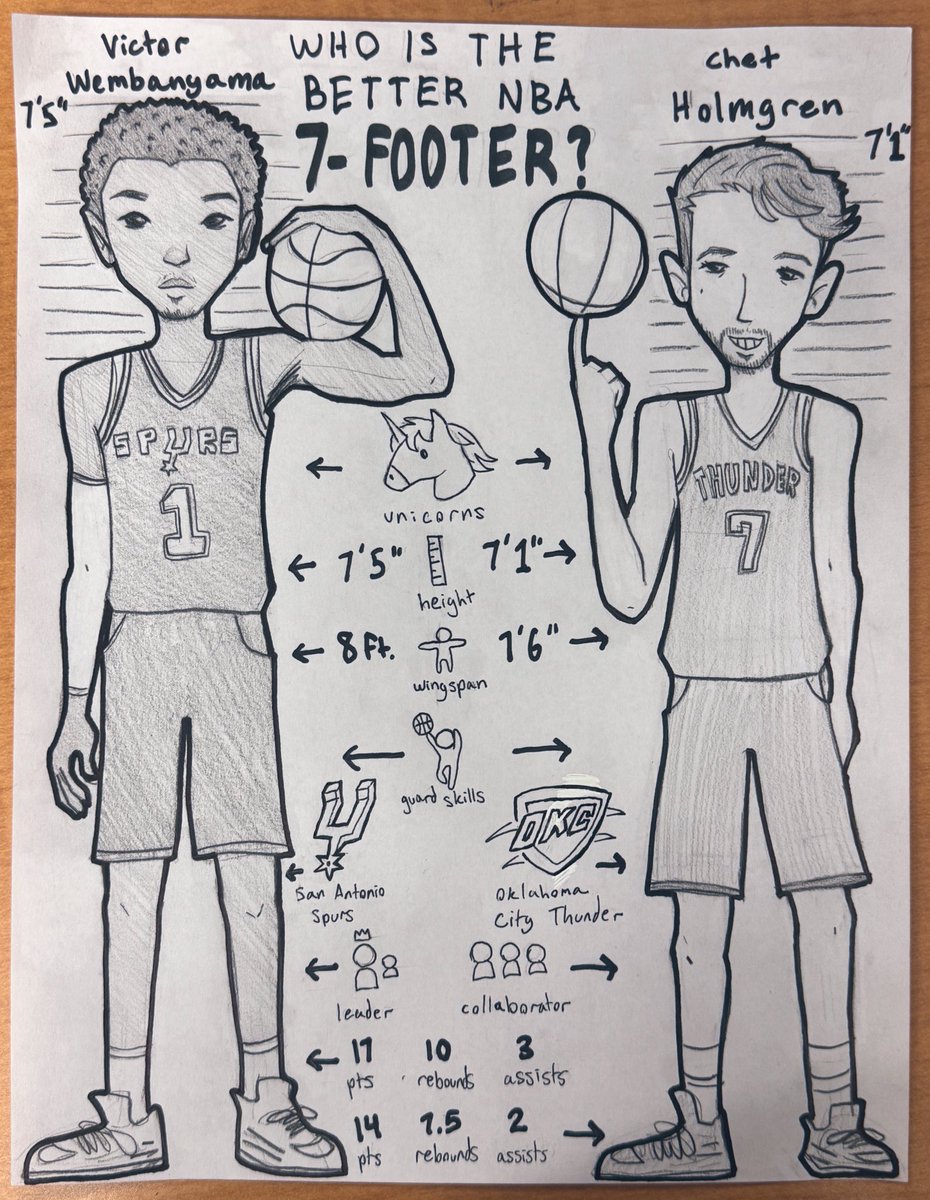 Victor
Wembanyama
7'5"
WHO IS THE
BETTER NBA
7-FOOTER?
Chet
Holmgren
7'1"
SPURS
1
THUNDER
7
unicorns
7'5" 7'1"
height
8 Ft. 7'6"
wingspan
guard skills
OKC
San Antonio
Spurs
Oklahoma
City Thunder
leader
collaborator
17 10 3
pts rebounds assists
14 7.5 2
pts rebounds assists